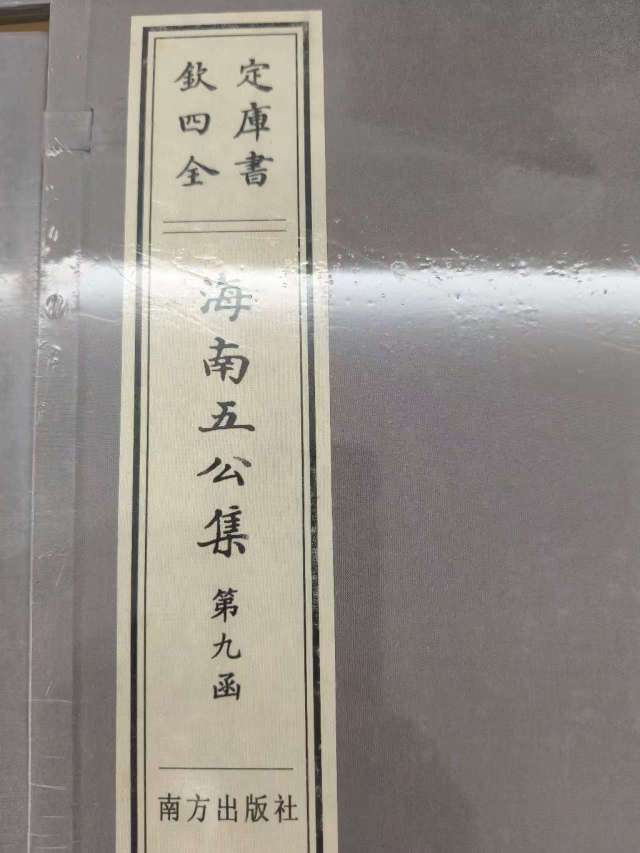 欽定
四庫
全書
海南五公集 第九函
南方出版社